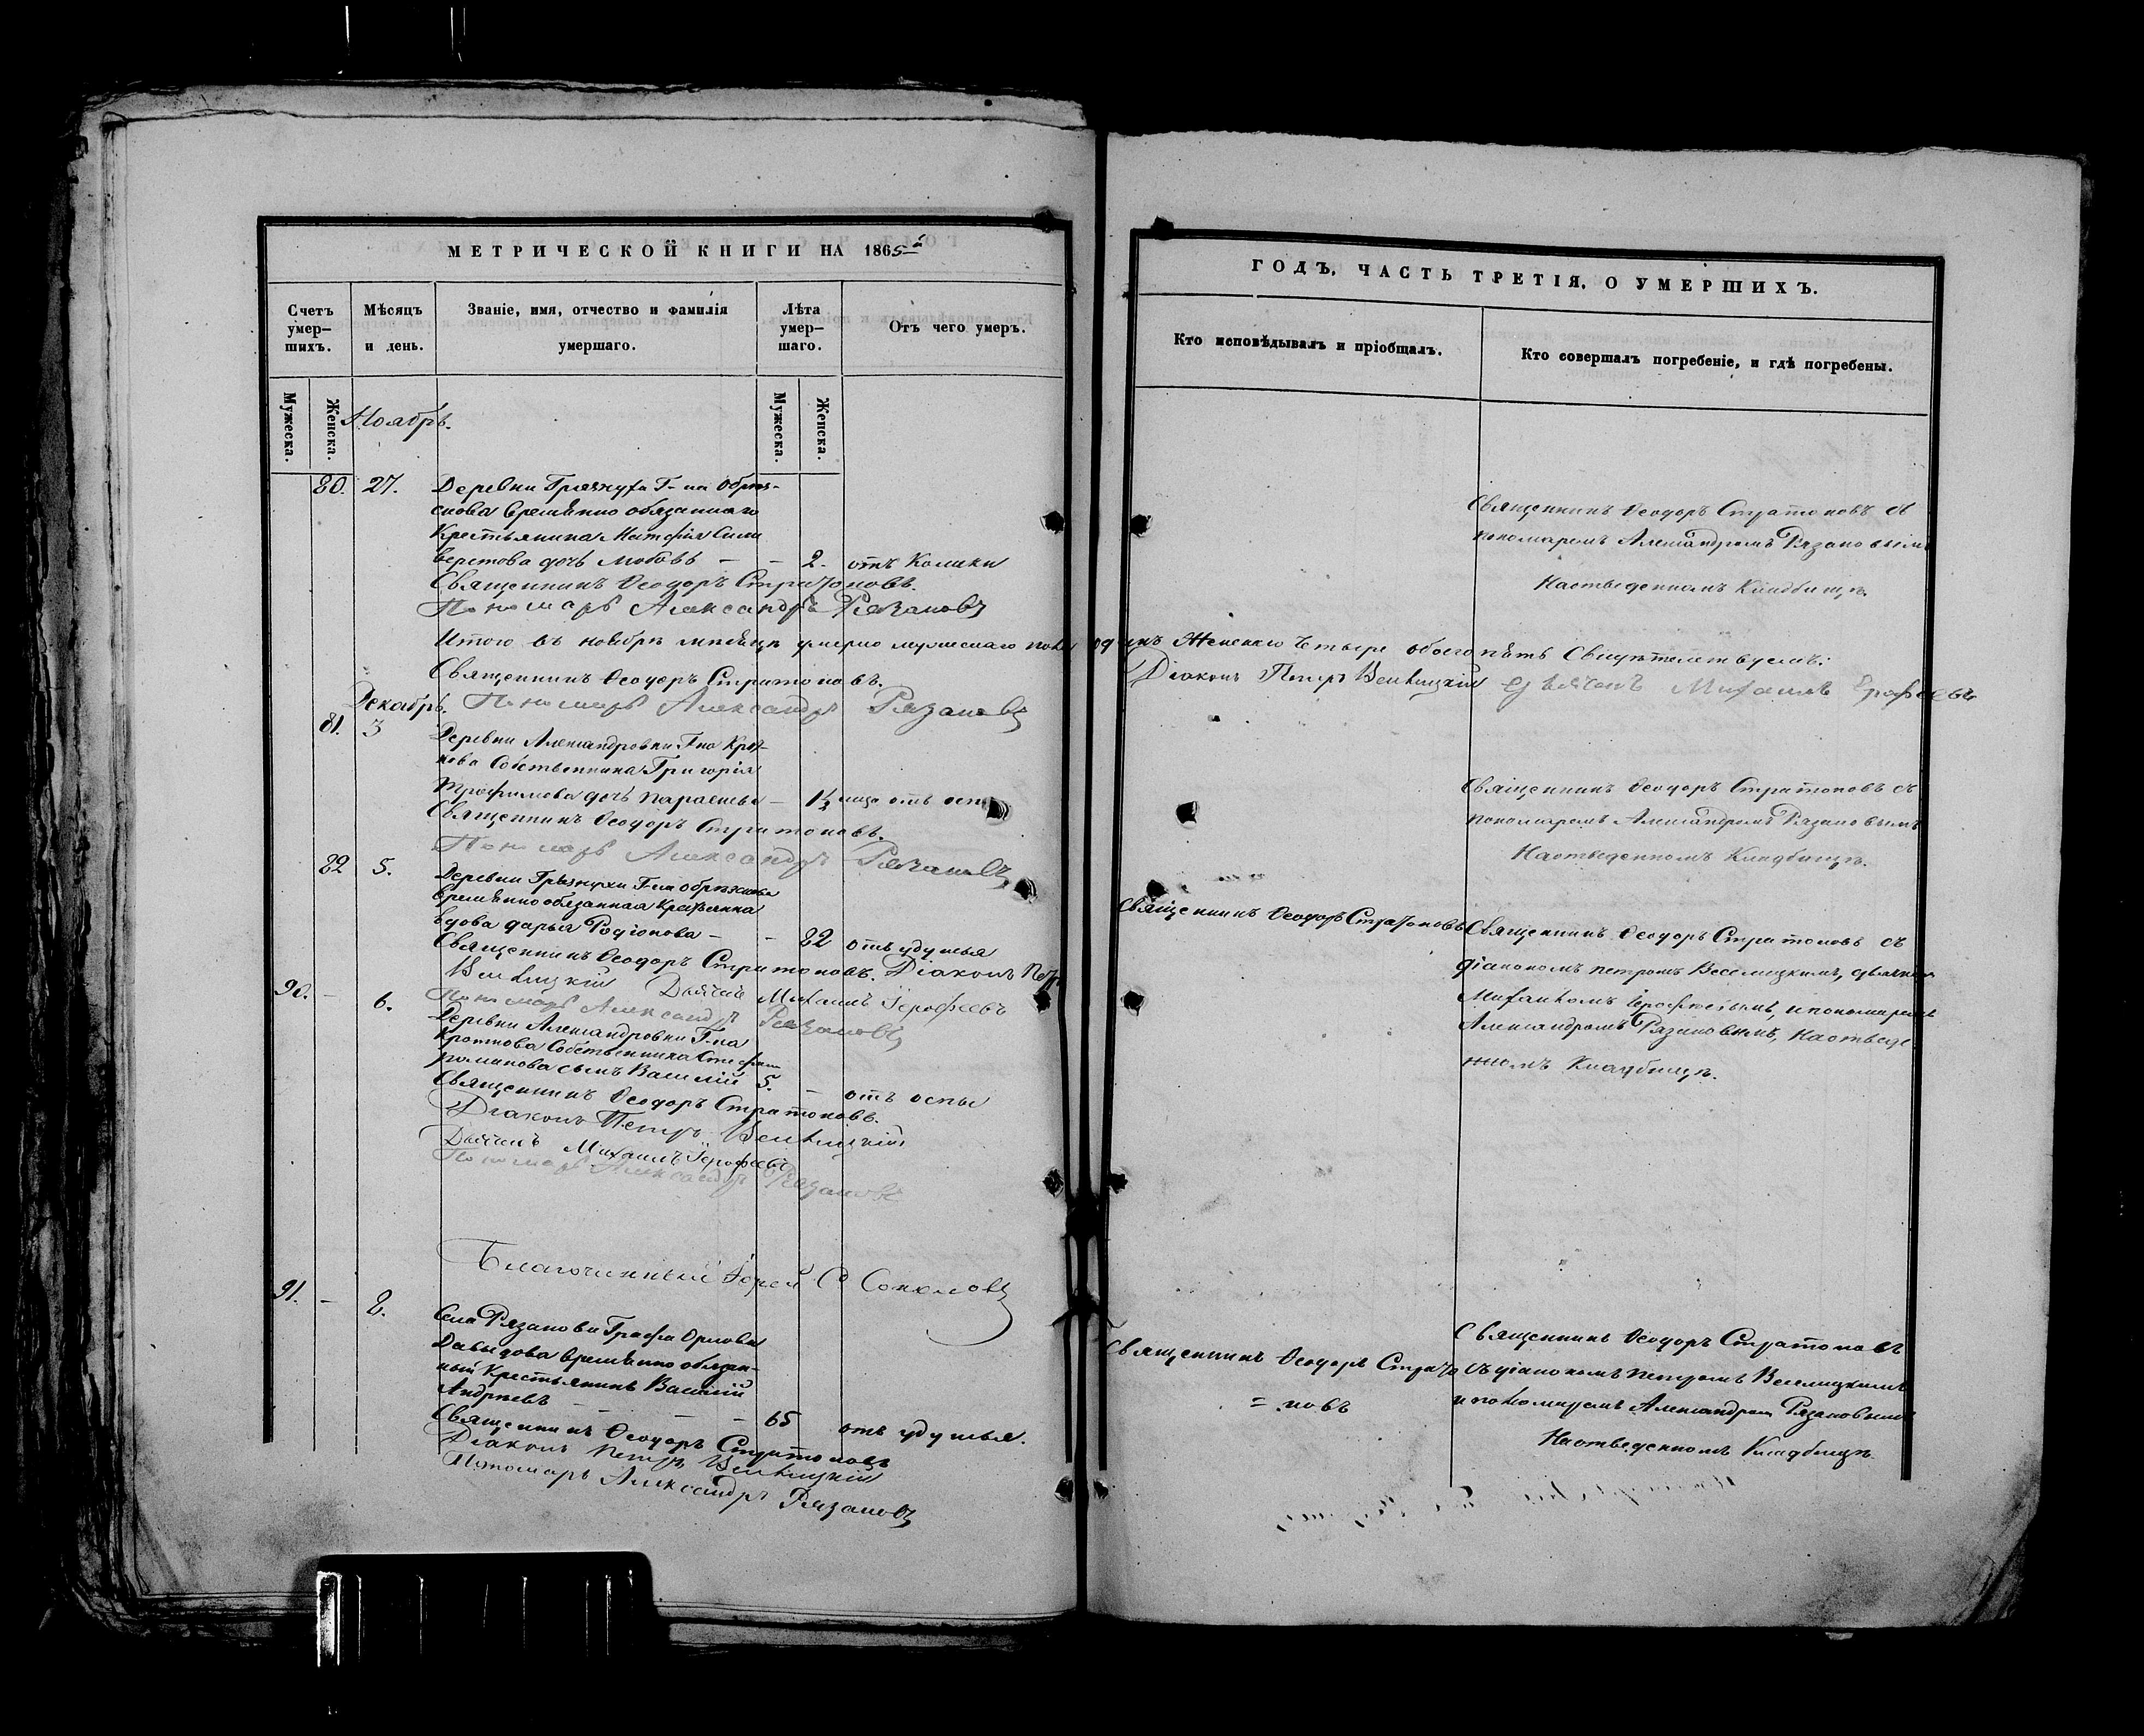 МЕТРИЧЕСКОЙ КНИГИ НА 1865й
Счетъ умер-шихъ.
Мѣсяцъ и день.
Званіе, имя, отчество и фамилія умершаго.
Лѣта умер-шаго.
Отъ чего умеръ.
Мужеска.
Женска.
Мужеска.
Женска.
Ноябрь.
80. 27. Деревни Грязнухи Г-на Обрѣз-
скова временно обязаннаго
Крестьянина Матфія Сили
верстова дочь Любовь — — 2. отъ Колики
Священникъ Ѳеодоръ Стратоновъ.
Пономарь Александръ Рязановъ
Итого въ ноябрѣ мѣсяцѣ умерло мужескаго пола одинъ Женскаго четыре обоего пять Свидѣтельствуемъ:
Священникъ Ѳеодоръ Стратоновъ.
Декабрь. Пономарь Александръ Рязановъ
81. 3 Деревни Александровки Г-на Крот-
кова Собственника Григорія
Трофимова дочь Параскева — 1½ отъ оспы
Священникъ Ѳеодоръ Стратоновъ.
Пономарь Александръ Рязановъ
82 5. Деревни Грязнухи Г-на Обрѣзкова
временно обязанная Крестьянка
вдова Дарья Родіонова — — 82 отъ удушья
Священникъ Ѳеодоръ Стратоновъ. Діаконъ Петръ
Веселицкій Дьячекъ Михаилъ Іерофеевъ
Пономарь Александръ Рязановъ
90. — 6. Деревни Александровки Г-на
Кроткова Собственника Стефана
Романова сынъ Василій 5. — отъ оспы
Священникъ Ѳеодоръ Стратоновъ.
Діаконъ Петръ Веселицкій
Дьячекъ Михаилъ Іерофеевъ
Пономарь Александръ Рязановъ
Благочинный Іерей С Соколовъ
91. — 8. Села Рязанова Графа Орлова
Давыдова временно обязан-
ный Крестьянинъ Василій
Андреевъ — — — 65 отъ удушья.
Священникъ Ѳеодоръ Стратоновъ
Діаконъ Петръ Веселицкій
Пономарь Александръ Рязановъ
ГОДЪ, ЧАСТЬ ТРЕТІЯ, О УМЕРШИХЪ.
Кто исповѣдывалъ и пріобщалъ.
Кто совершалъ погребеніе, и гдѣ погребены.
Священникъ Ѳеодоръ Стратоновъ съ
пономаремъ Александромъ Рязановымъ
На отведенномъ Кладбищѣ.
Діаконъ Петръ Веселицкій Дьячекъ Михаилъ Ерофеевъ
Священникъ Ѳеодоръ Стратоновъ съ
пономаремъ Александромъ Рязановымъ
На отведенномъ Кладбищѣ.
Священникъ Ѳеодоръ Стратоновъ
Священникъ Ѳеодоръ Стратоновъ съ
діакономъ Петромъ Веселицкимъ, дьячкомъ
Михаиломъ Ерофеевымъ, и пономаремъ
Александромъ Рязановымъ, На отведе-
нномъ Кладбищѣ.
Священникъ Ѳеодоръ Страто
= новъ
Священникъ Ѳеодоръ Стратоновъ
съ діакономъ Петромъ Веселицкимъ
и пономаремъ Александромъ Рязановымъ
На отведенномъ Кладбищѣ.